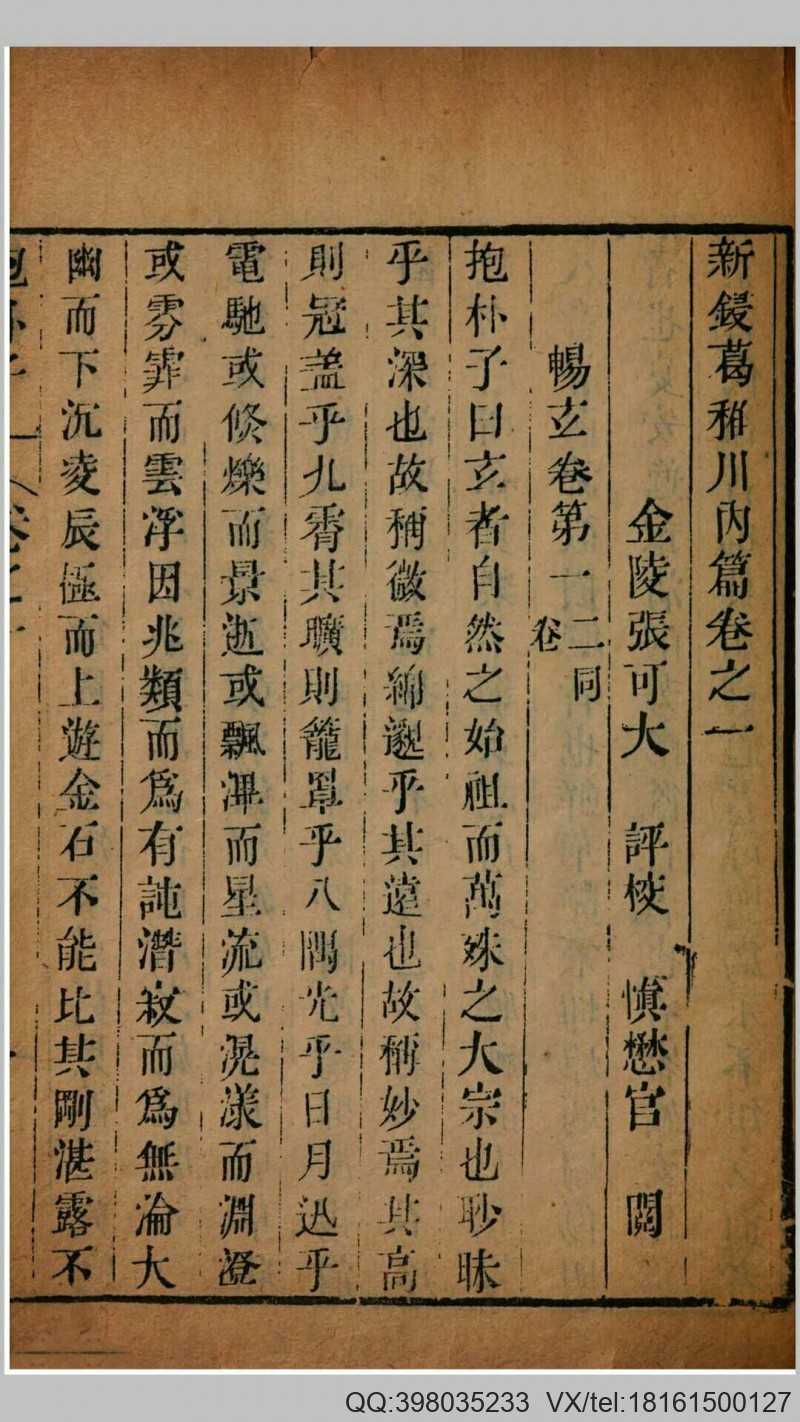 新鋟葛稚川內篇卷之一
金陵張可大　評校　慎懋官　閱
暢玄卷第一　二同卷
抱朴子曰玄者自然之始祖而萬殊之大宗也眇昧
乎其深也故稱微焉綿邈乎其遠也故稱妙焉其高
則冠蓋乎九霄其曠則籠罩乎八隅光乎日月迅乎
電馳或倏爍而景逝或飄滭而星流或滉漾而淵澄
或雰霏而雲浮因兆類而爲有託潛寂而爲無淪大
幽而下沉凌辰極而上遊金石不能比其剛湛露不
QQ:398035233 VX/tel:18161500127